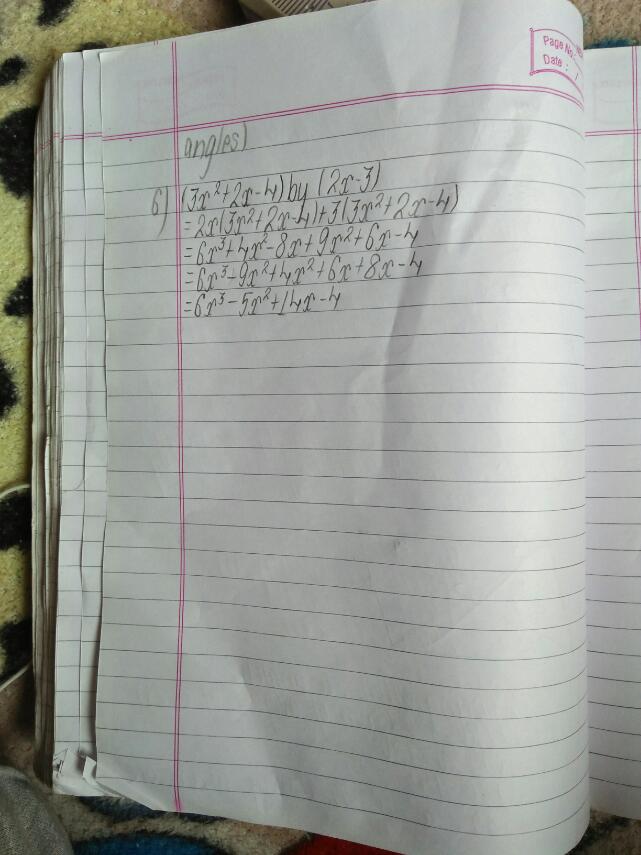 Page No.
Date : /
angles)
6) (3x²+2x-4) by (2x-3)
= 2x(3x²+2x-4)+3(3x²+2x-4)
= 6x³+4x²-8x+9x²+6x-4
= 6x³-9x²+4x²+6x+8x-4
= 6x³-5x²+14x-4